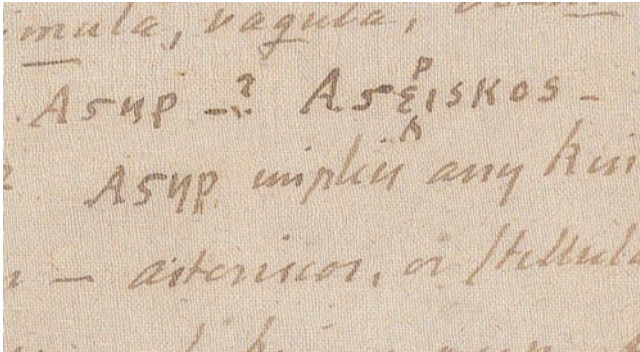 imula, vagula,
Αϛηρ -? Αϛερισκος -
Αϛηρ implies any kin
— asteriscos, or stellul